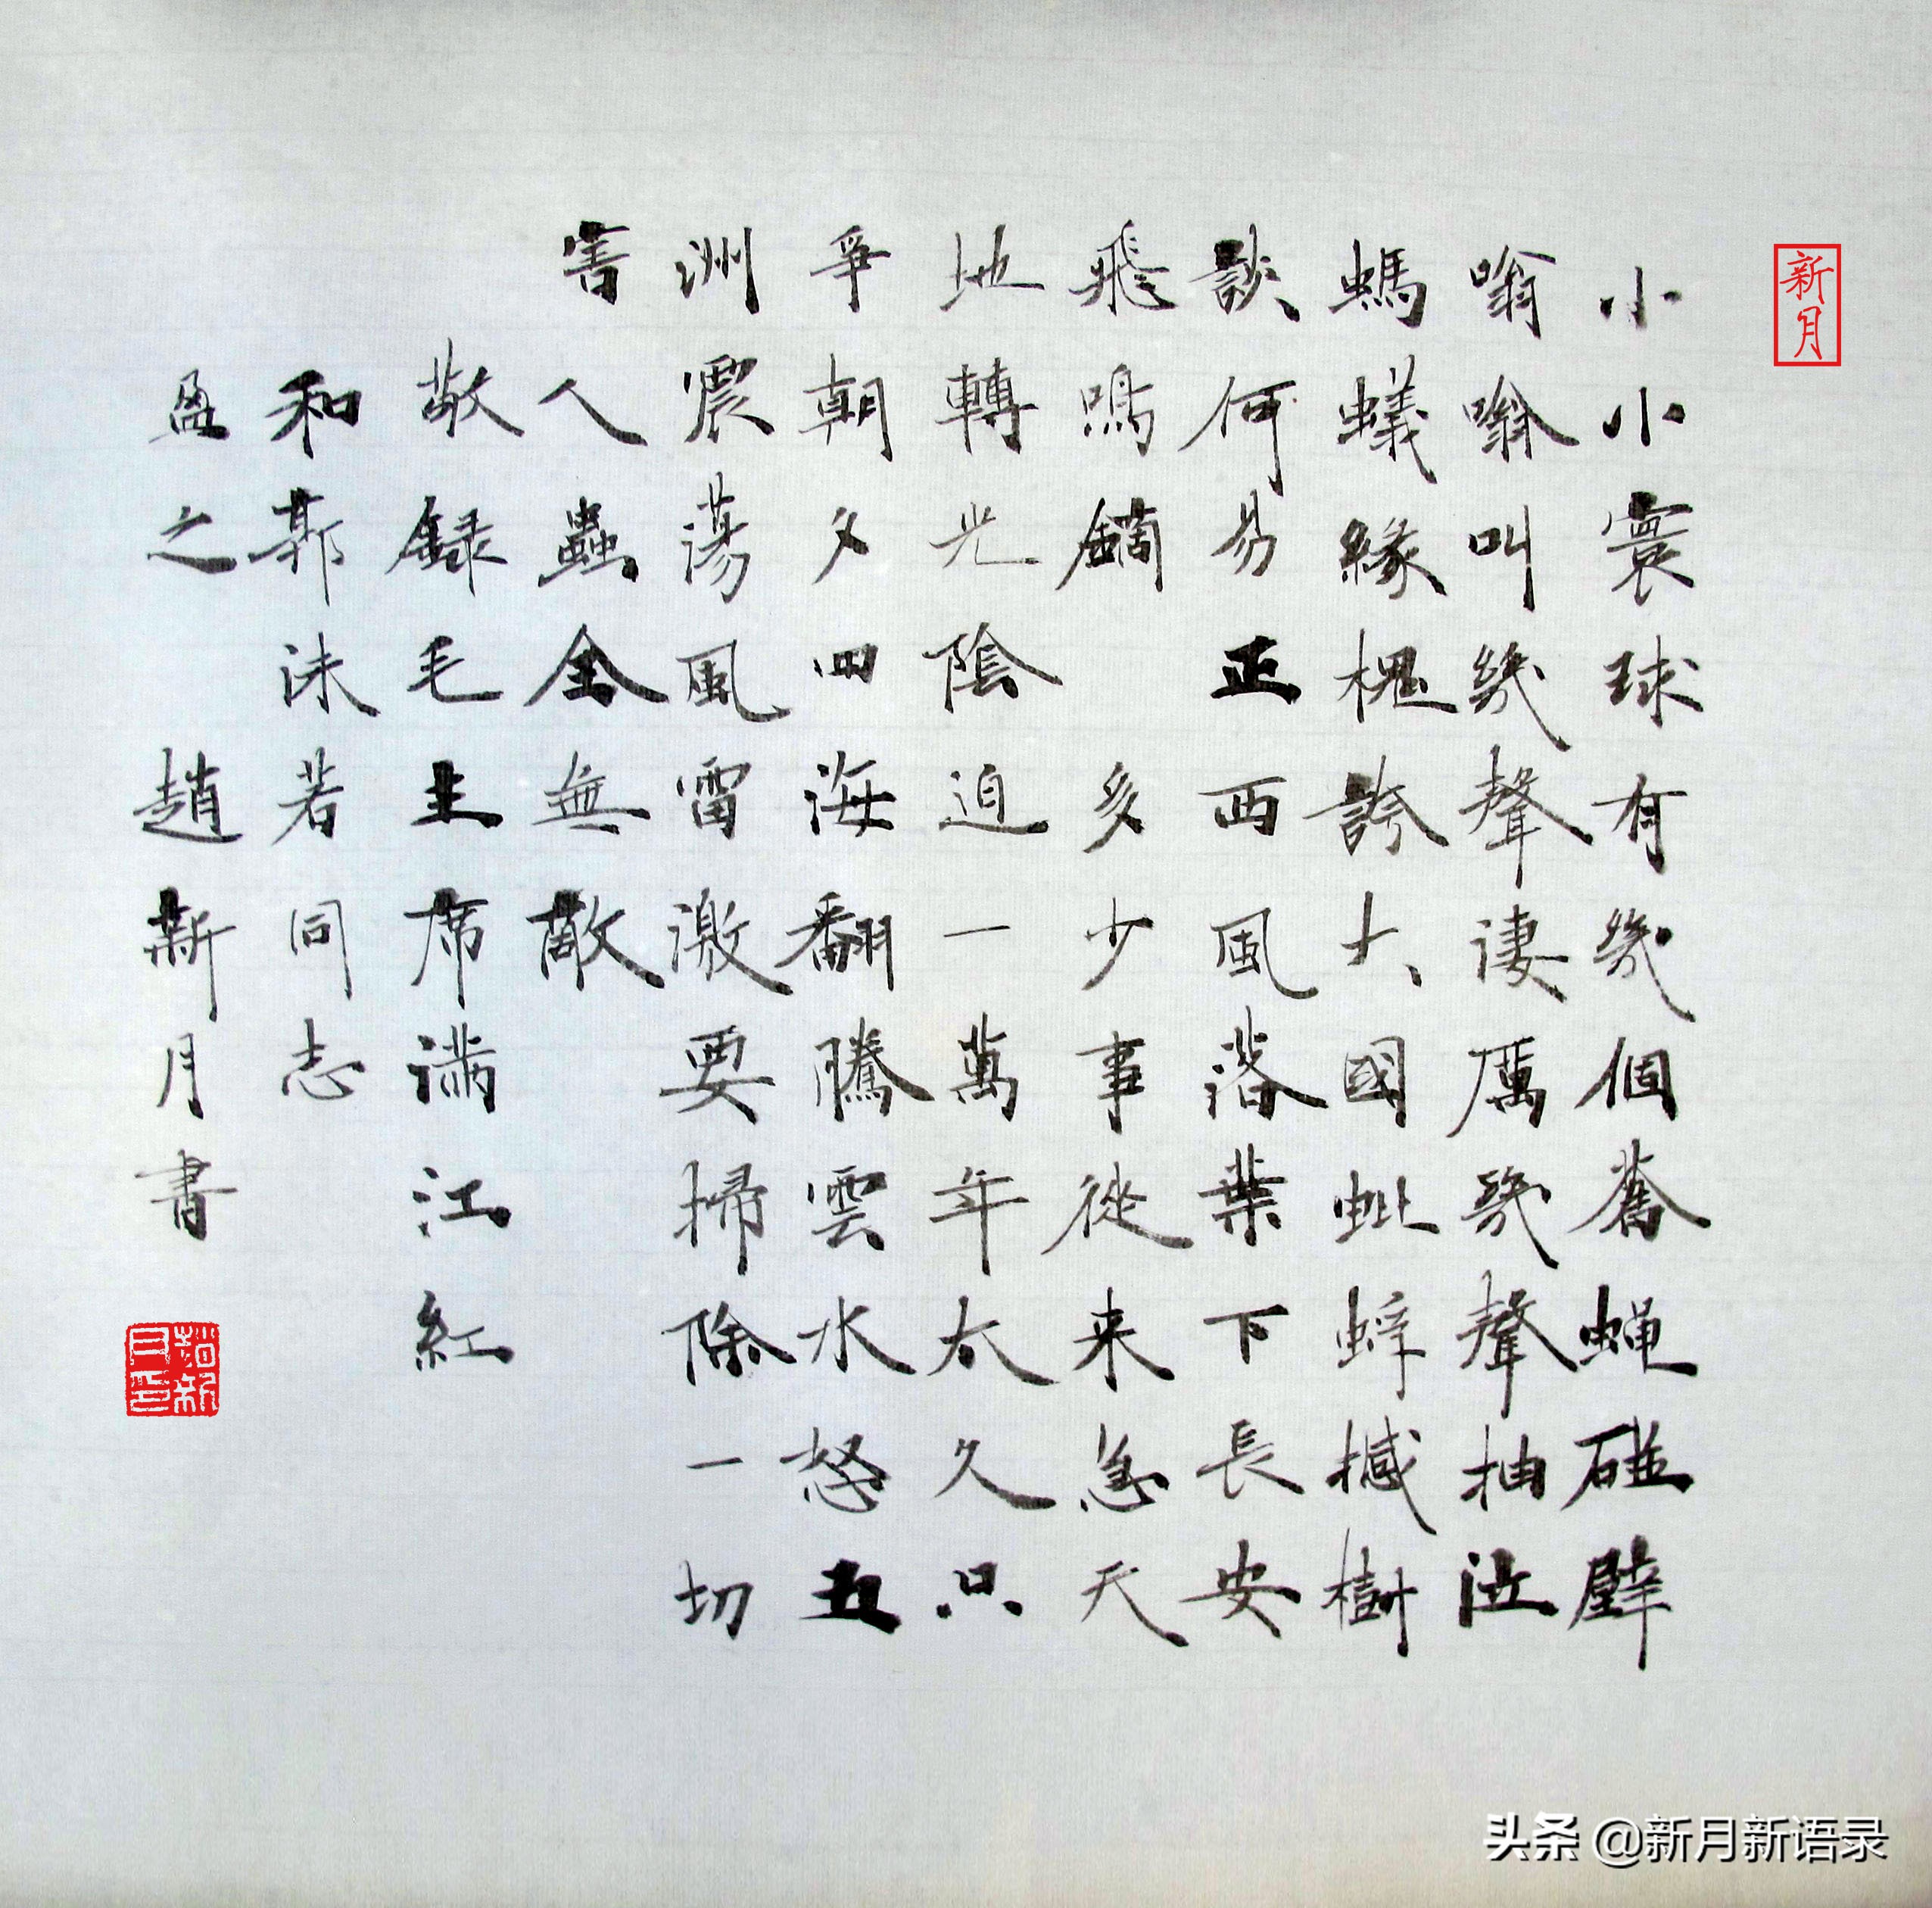 新月
小小寰球有幾個蒼蝇碰壁
嗡嗡叫幾聲凄厲幾聲抽泣
螞蟻緣槐誇大國蚍蜉撼樹
談何易正西風落葉下長安
飛鳴鏑 多少事從来急天
地轉光陰迫一萬年太久只
爭朝夕四海翻騰雲水怒五
洲震蕩風雷激要掃除一切
害人蟲全無敵
敬録毛主席满江紅
和郭沫若同志
盈之 趙新月書
趙新月印
头条 @新月新语录